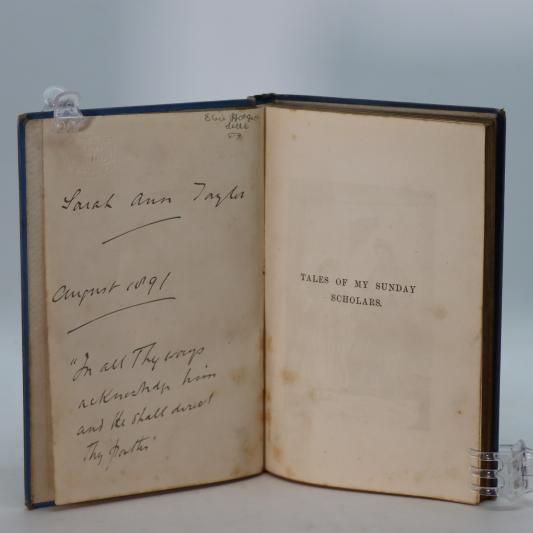 Elsie
Sarah Ann Taylor
August 1891
"In all Thy ways
acknowledge him
and He shall direct
Thy paths"
TALES OF MY SUNDAY
SCHOLARS.